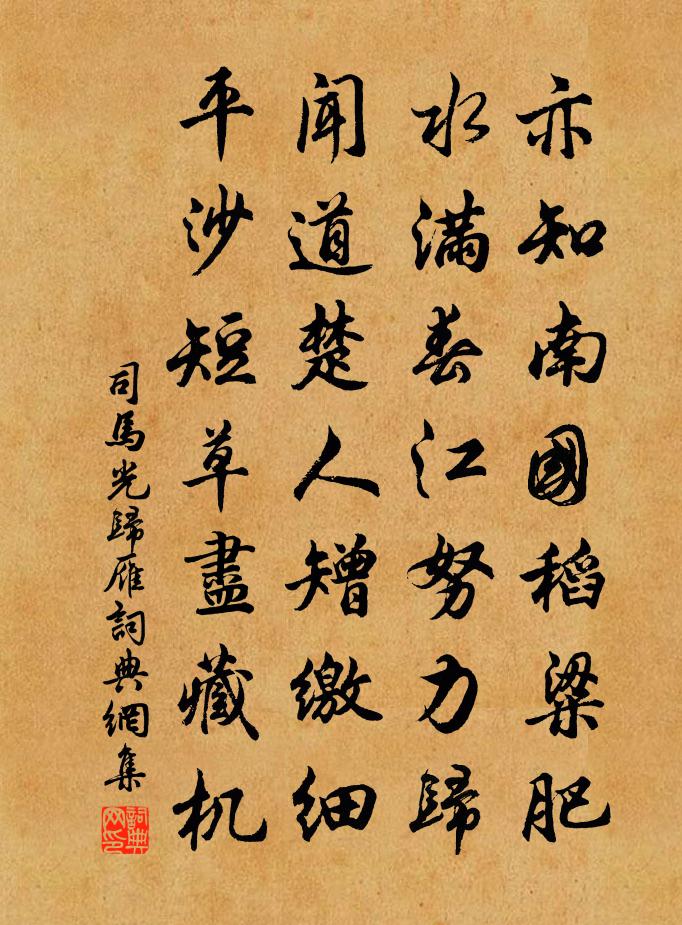 亦知南國稻粱肥
水滿春江努力歸
聞道楚人矰繳細
平沙短草盡藏机
司馬光歸雁詞典網集
詞典網印